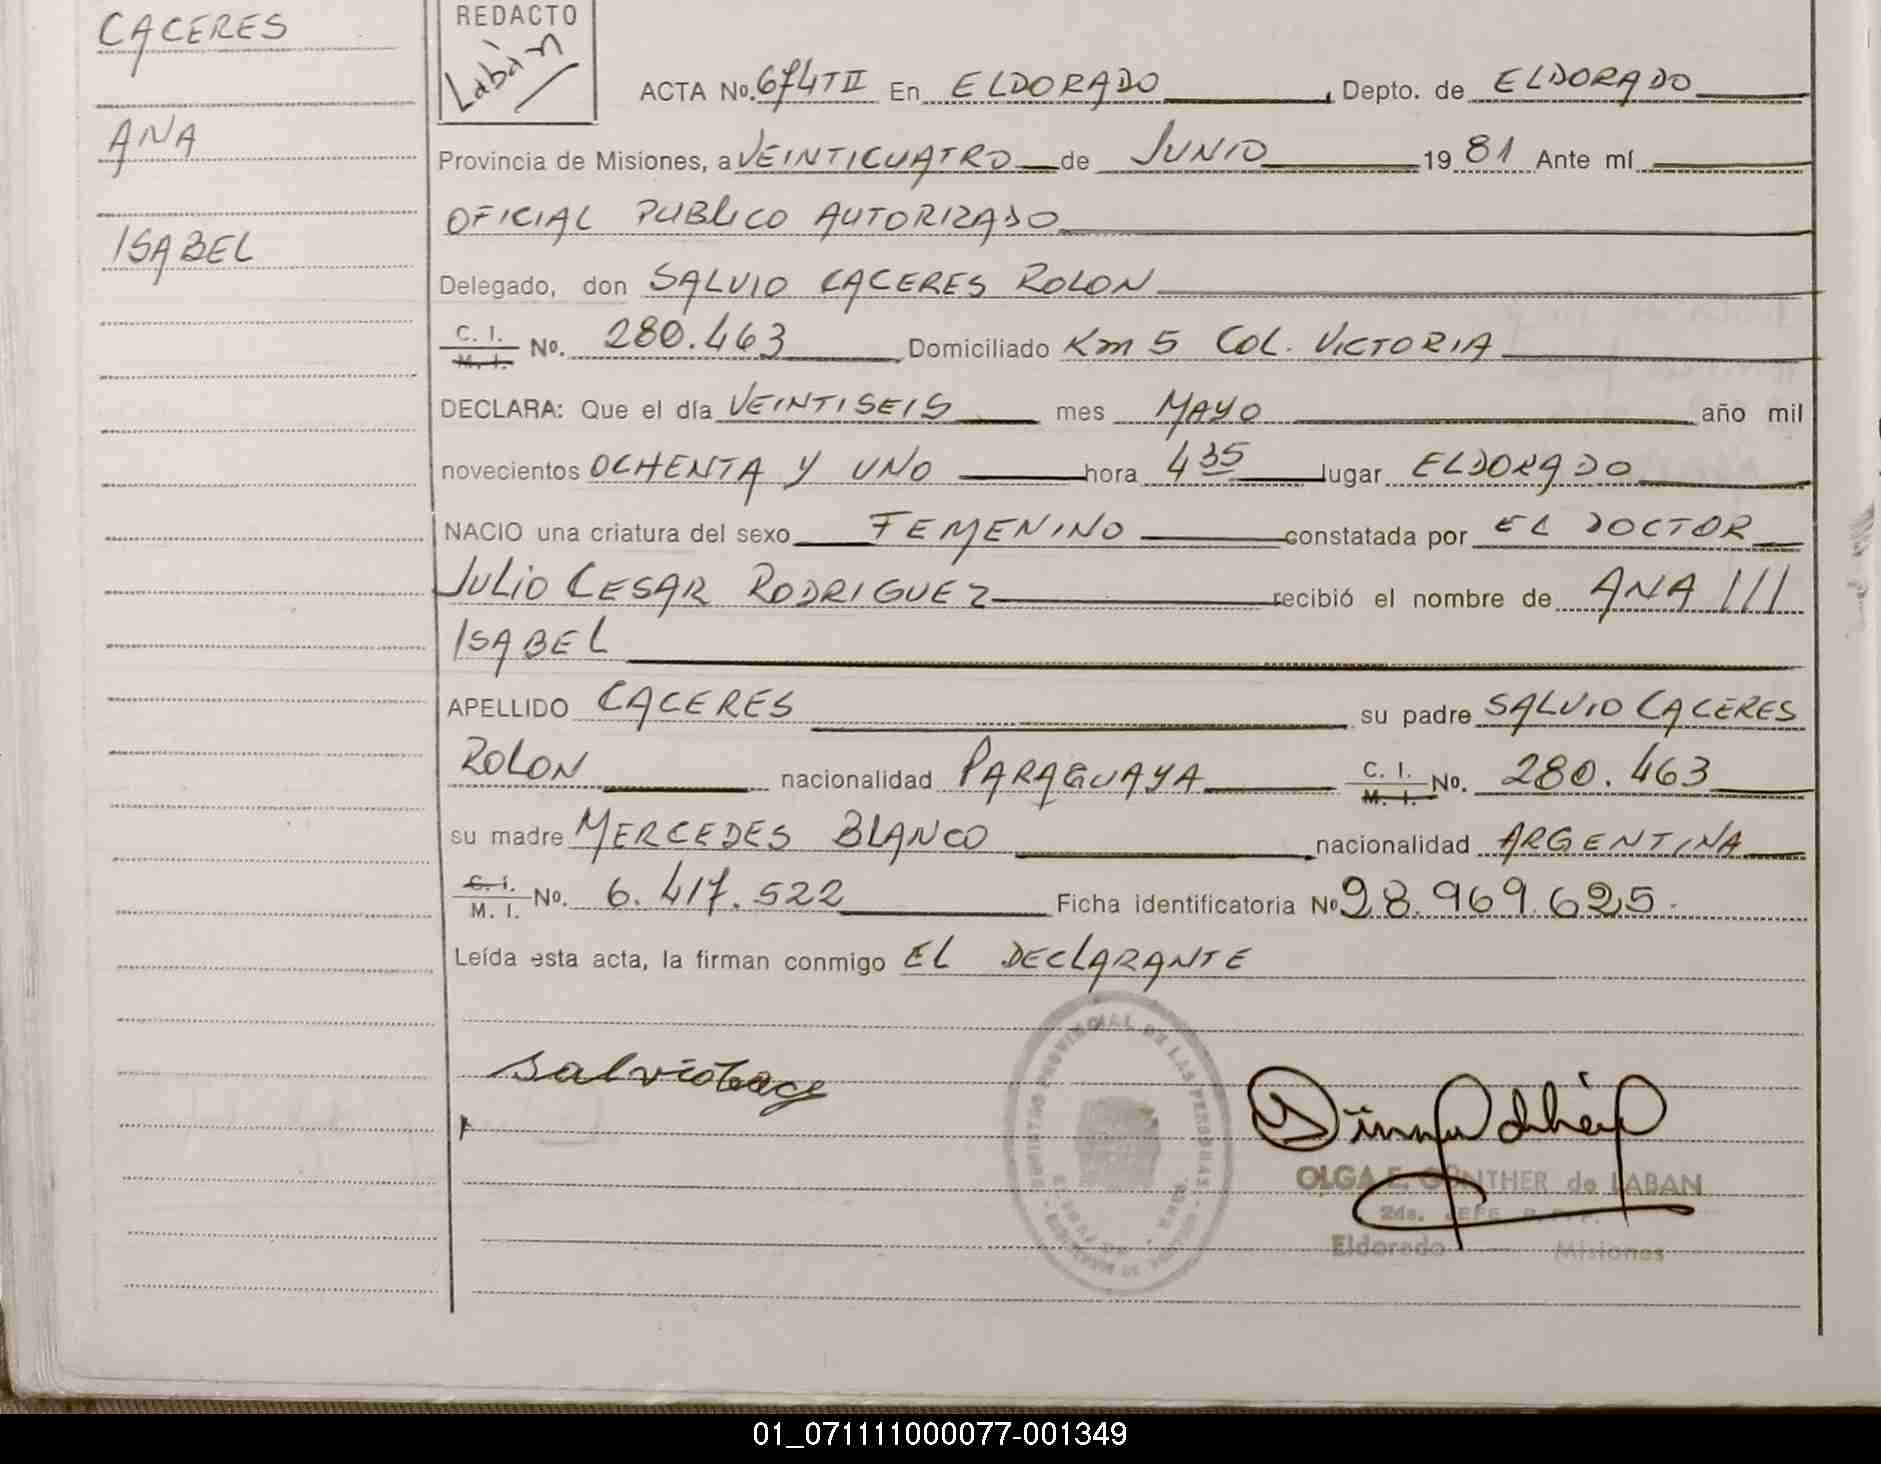 CACERES
ANA
ISABEL
REDACTO
Labán
ACTA No. 674TII En ELDORADO, Depto. de ELDORADO
Provincia de Misiones, a VEINTICUATRO de JUNIO 19 81 Ante mí
OFICIAL PUBLICO AUTORIZADO
Delegado, don SALVIO CACERES ROLON
C. I. M. I. No. 280.463 Domiciliado Km 5 COL. VICTORIA
DECLARA: Que el día VEINTISEIS mes MAYO año mil
novecientos OCHENTA Y UNO hora 4 35 lugar ELDORADO
NACIO una criatura del sexo FEMENINO constatada por EL DOCTOR
JULIO CESAR RODRIGUEZ recibió el nombre de ANA ///
ISABEL
APELLIDO CACERES su padre SALVIO CACERES
ROLON nacionalidad PARAGUAYA C. I. M. I. No. 280.463
su madre MERCEDES BLANCO nacionalidad ARGENTINA
C. I. M. I. No. 6.417.522 Ficha identificatoria No 28.969.625.
Leída esta acta, la firman conmigo EL DECLARANTE
REGISTRO PROVINCIAL DE LAS PERSONAS
OLGA E. GÜNTHER de LABAN
2da. JEFE
Eldorado Misiones
01_071111000077-001349